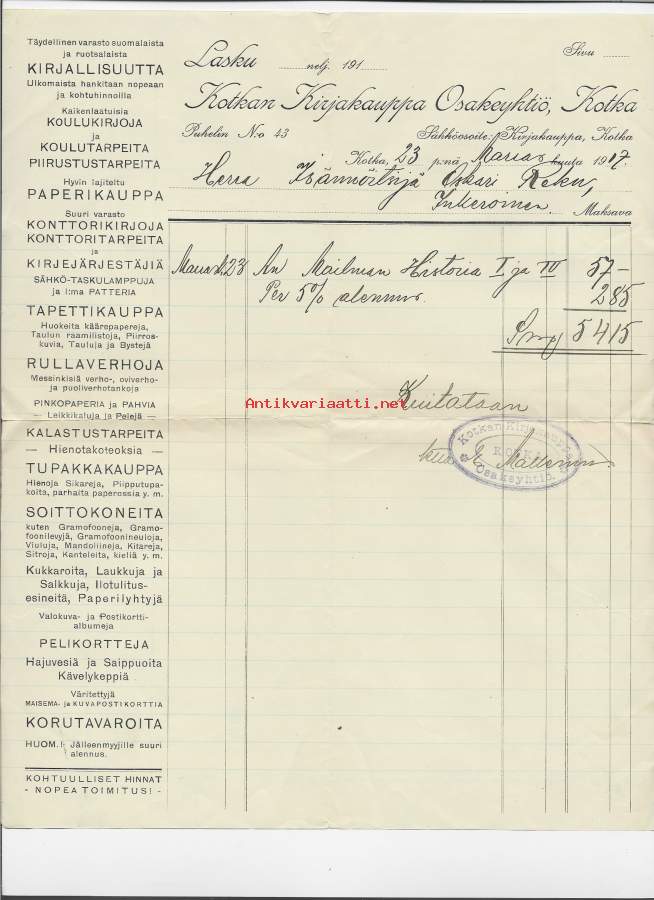 Täydellinen varasto suomalaista
ja ruotsalaista
KIRJALLISUUTTA
Ulkomaista hankitaan nopeaan
ja kohtuhinnoilla
Kaikenlaatuisia
KOULUKIRJOJA
ja
KOULUTARPEITA
PIIRUSTUSTARPEITA
Hyvin lajiteltu
PAPERIKAUPPA
Suuri varasto
KONTTORIKIRJOJA
KONTTORITARPEITA
ja
KIRJEJÄRJESTÄJIÄ
SÄHKÖ-TASKULAMPPUJA
ja I:ma PATTERIA
TAPETTIKAUPPA
Huokeita käärepapereja,
Taulun raamilistoja, Piirros-
kuvia, Tauluja ja Bystejä
RULLAVERHOJA
Messinkisiä verho-, oviverho-
ja puoliverhotankoja
PINKOPAPERIA ja PAHVIA
— Leikkikaluja ja Pelejä —
KALASTUSTARPEITA
— Hienotakoteoksia —
TUPAKKAKAUPPA
Hienoja Sikareja, Piipputupa-
koita, parhaita paperossia y. m.
SOITTOKONEITA
kuten Gramofooneja, Gramo-
foonilevyjä, Gramofoonineuloja,
Viuluja, Mandoliineja, Kitareja,
Sitroja, Kanteleita, kieliä y. m.
Kukkaroita, Laukkuja ja
Salkkuja, Ilotulitus-
esineitä, Paperilyhtyjä
Valokuva- ja Postikortti-
albumeja
PELIKORTTEJA
Hajuvesiä ja Saippuoita
Kävelykeppiä
Väritettyjä
MAISEMA- ja KUVAPOSTIKORTTIA
KORUTAVAROITA
HUOM.! Jälleenmyyjille suuri
alennus.
KOHTUULLISET HINNAT
- NOPEA TOIMITUS! -
Lasku nelj. 191 Sivu
Kotkan Kirjakauppa Osakeyhtiö, Kotka
Puhelin N:o 43 Sähköosoite: Kirjakauppa, Kotka
Kotka, 23 p:nä Marras kuuta 1917.
Herra Isännöitsijä Oskari Reku,
Inkeroinen. Maksava
Marrask. 23 An Mailman Historia I ja IV 57 —
Per 5% alennus. 2 85
Smk 54 15
Kuitataan
Kotkan Kirjakauppa
KOTKA
Osakeyhtiö.
Antikvariaatti.net